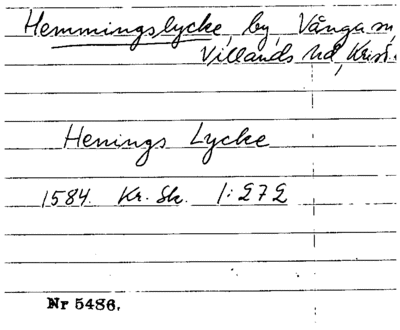 Hemmingslycke, by, Vånga sn,
Villands hd, Krist.
Henings Lycke
1584. Kr. Sk. 1:272
Nr 5486.